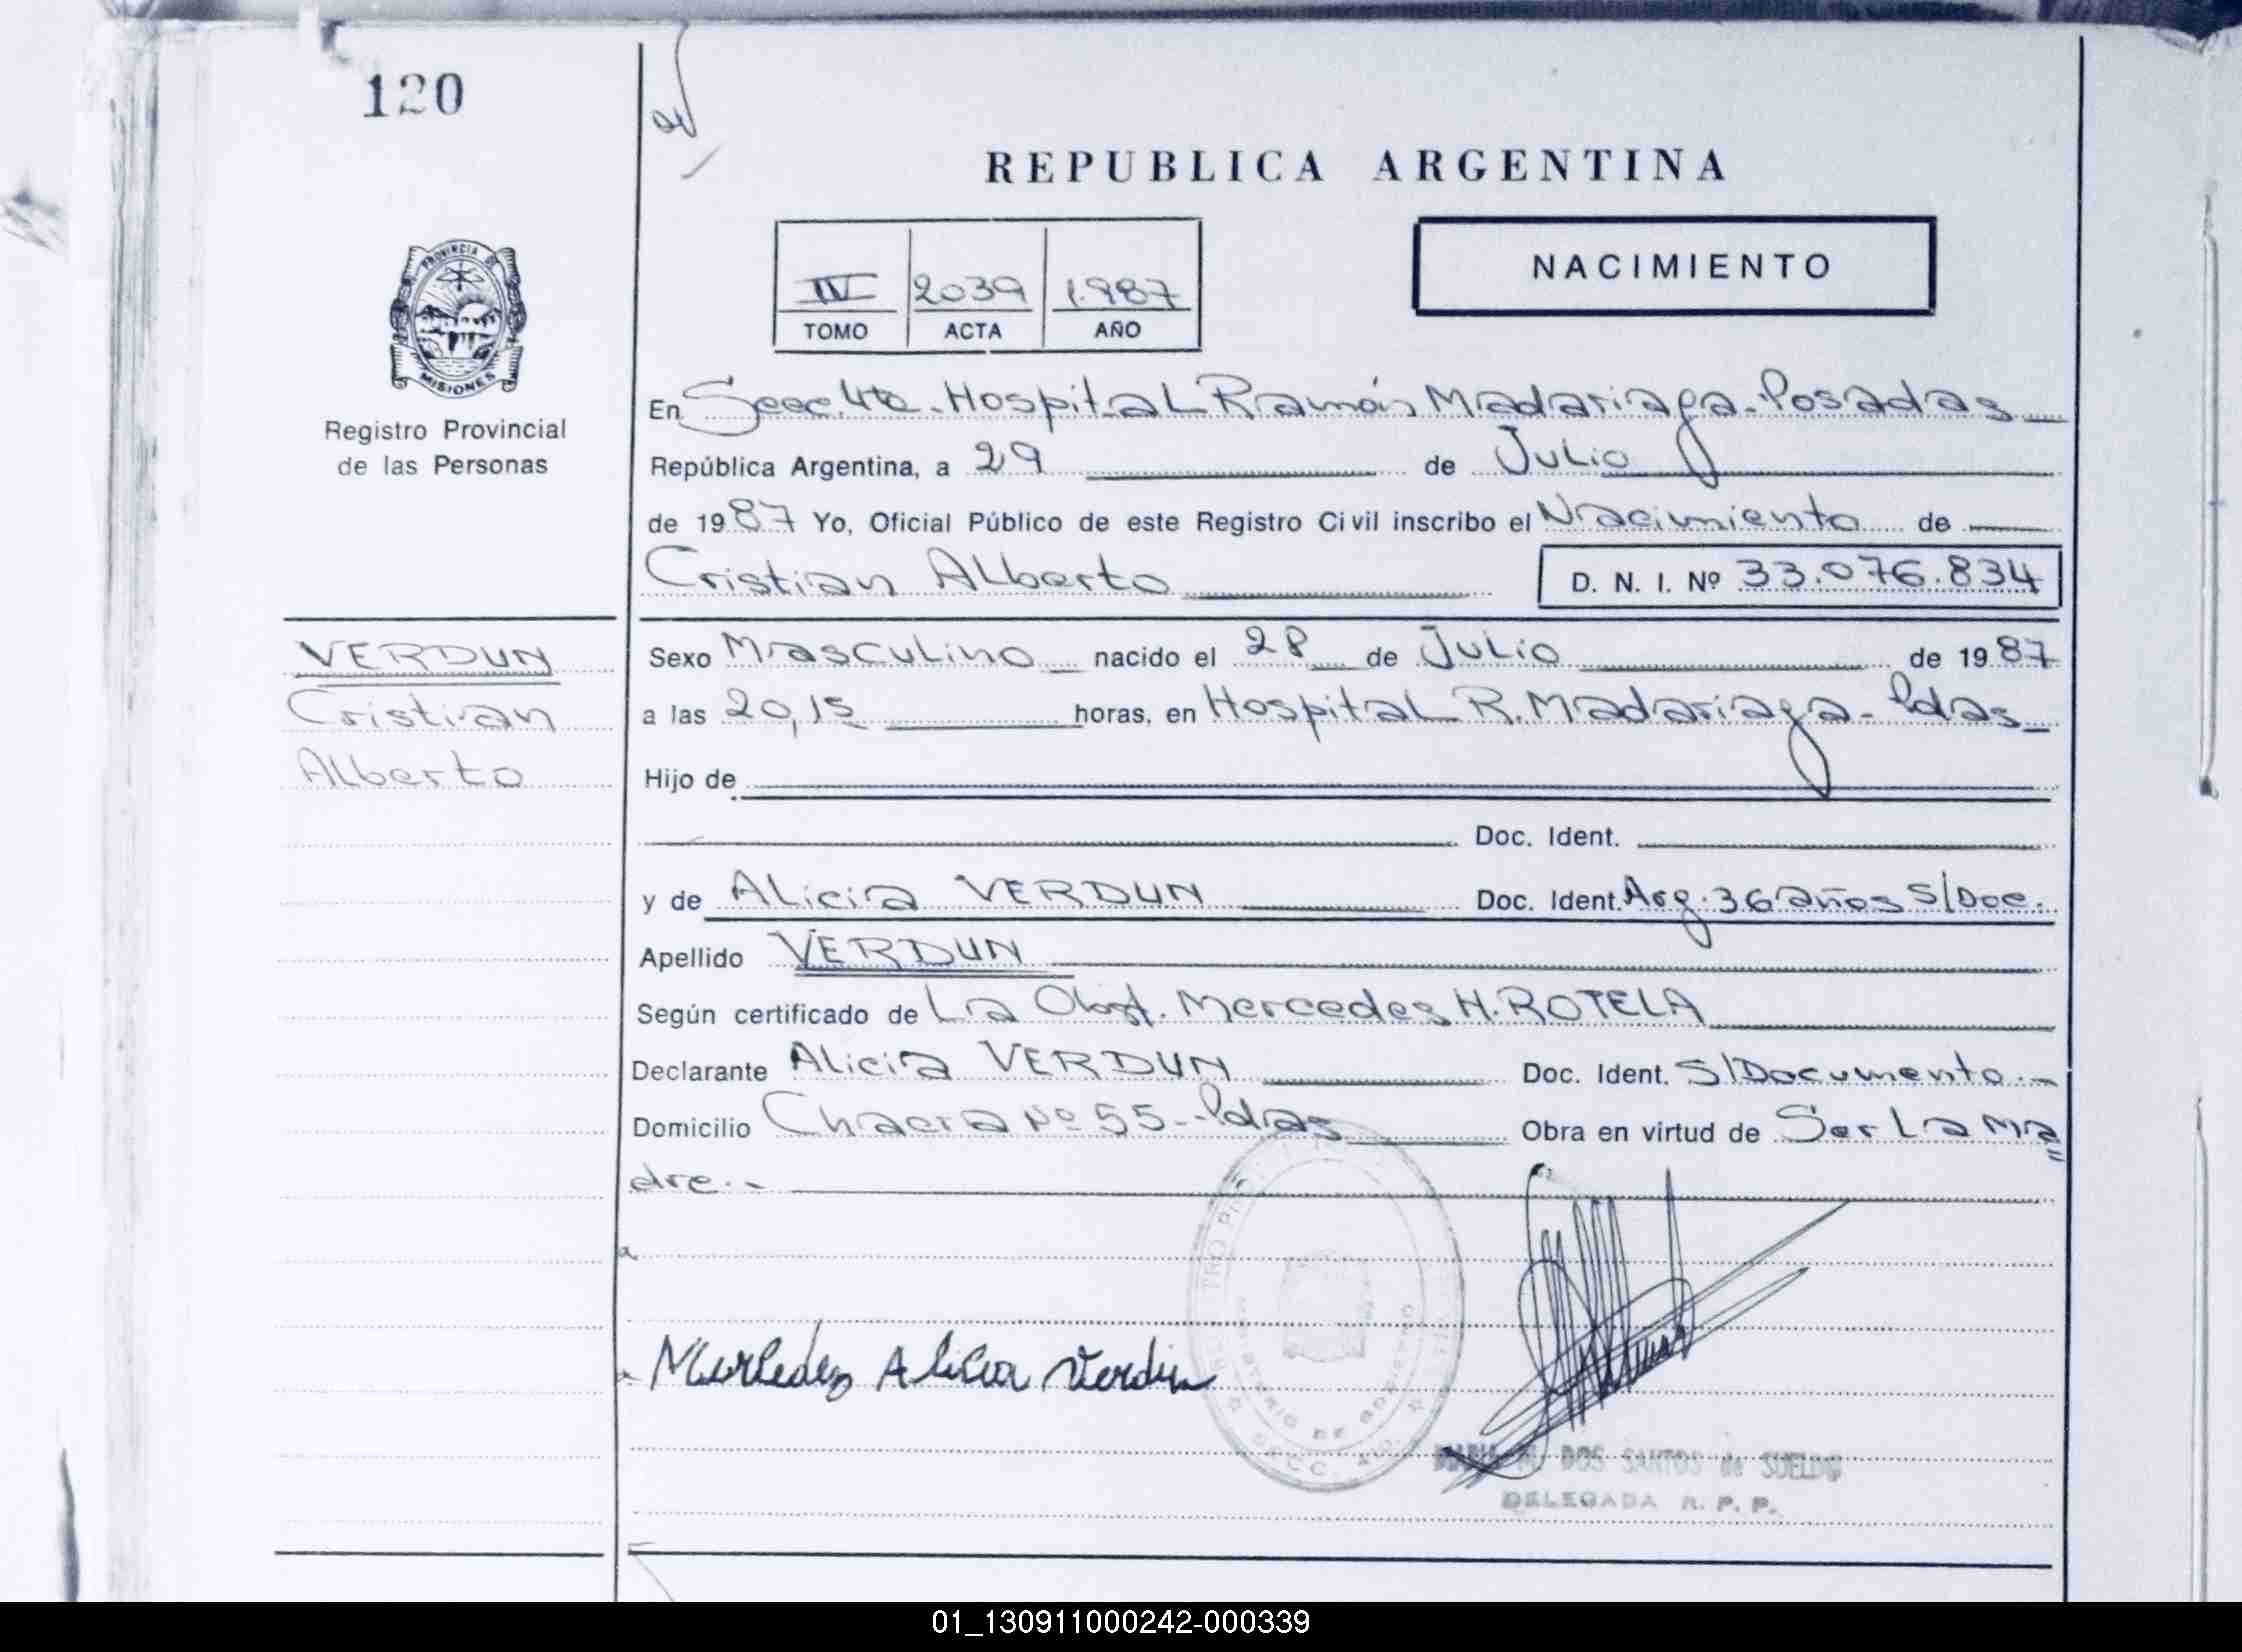 120
REPUBLICA ARGENTINA
NACIMIENTO
IV 2039 1.987
TOMO ACTA AÑO
PROVINCIA DE
MISIONES
Registro Provincial
de las Personas
En Secc. 4ta - Hospital Ramón Madariaga - Posadas
República Argentina, a 29 de Julio
de 1987 Yo, Oficial Público de este Registro Civil inscribo el Nacimiento de
Cristian Alberto D. N. I. Nº 33.076.834
VERDUN
Cristian
Alberto
Sexo Masculino nacido el 28 de Julio de 1987
a las 20,15 horas, en Hospital R. Madariaga - Pdas
Hijo de
Doc. Ident.
y de Alicia VERDUN Doc. Ident. Arg. 36 años S/Doc.
Apellido VERDUN
Según certificado de La Obst. Mercedes H. ROTELA
Declarante Alicia VERDUN Doc. Ident. S/Documento.-
Domicilio Chacra Nº 55 - Pdas Obra en virtud de Ser La Ma=
dre.-
Mercedes Alicia Verdun
DE GOBIERNO
SECC.
DOS SANTOS de SUELDO
DELEGADA R. P. P.
01_130911000242-000339